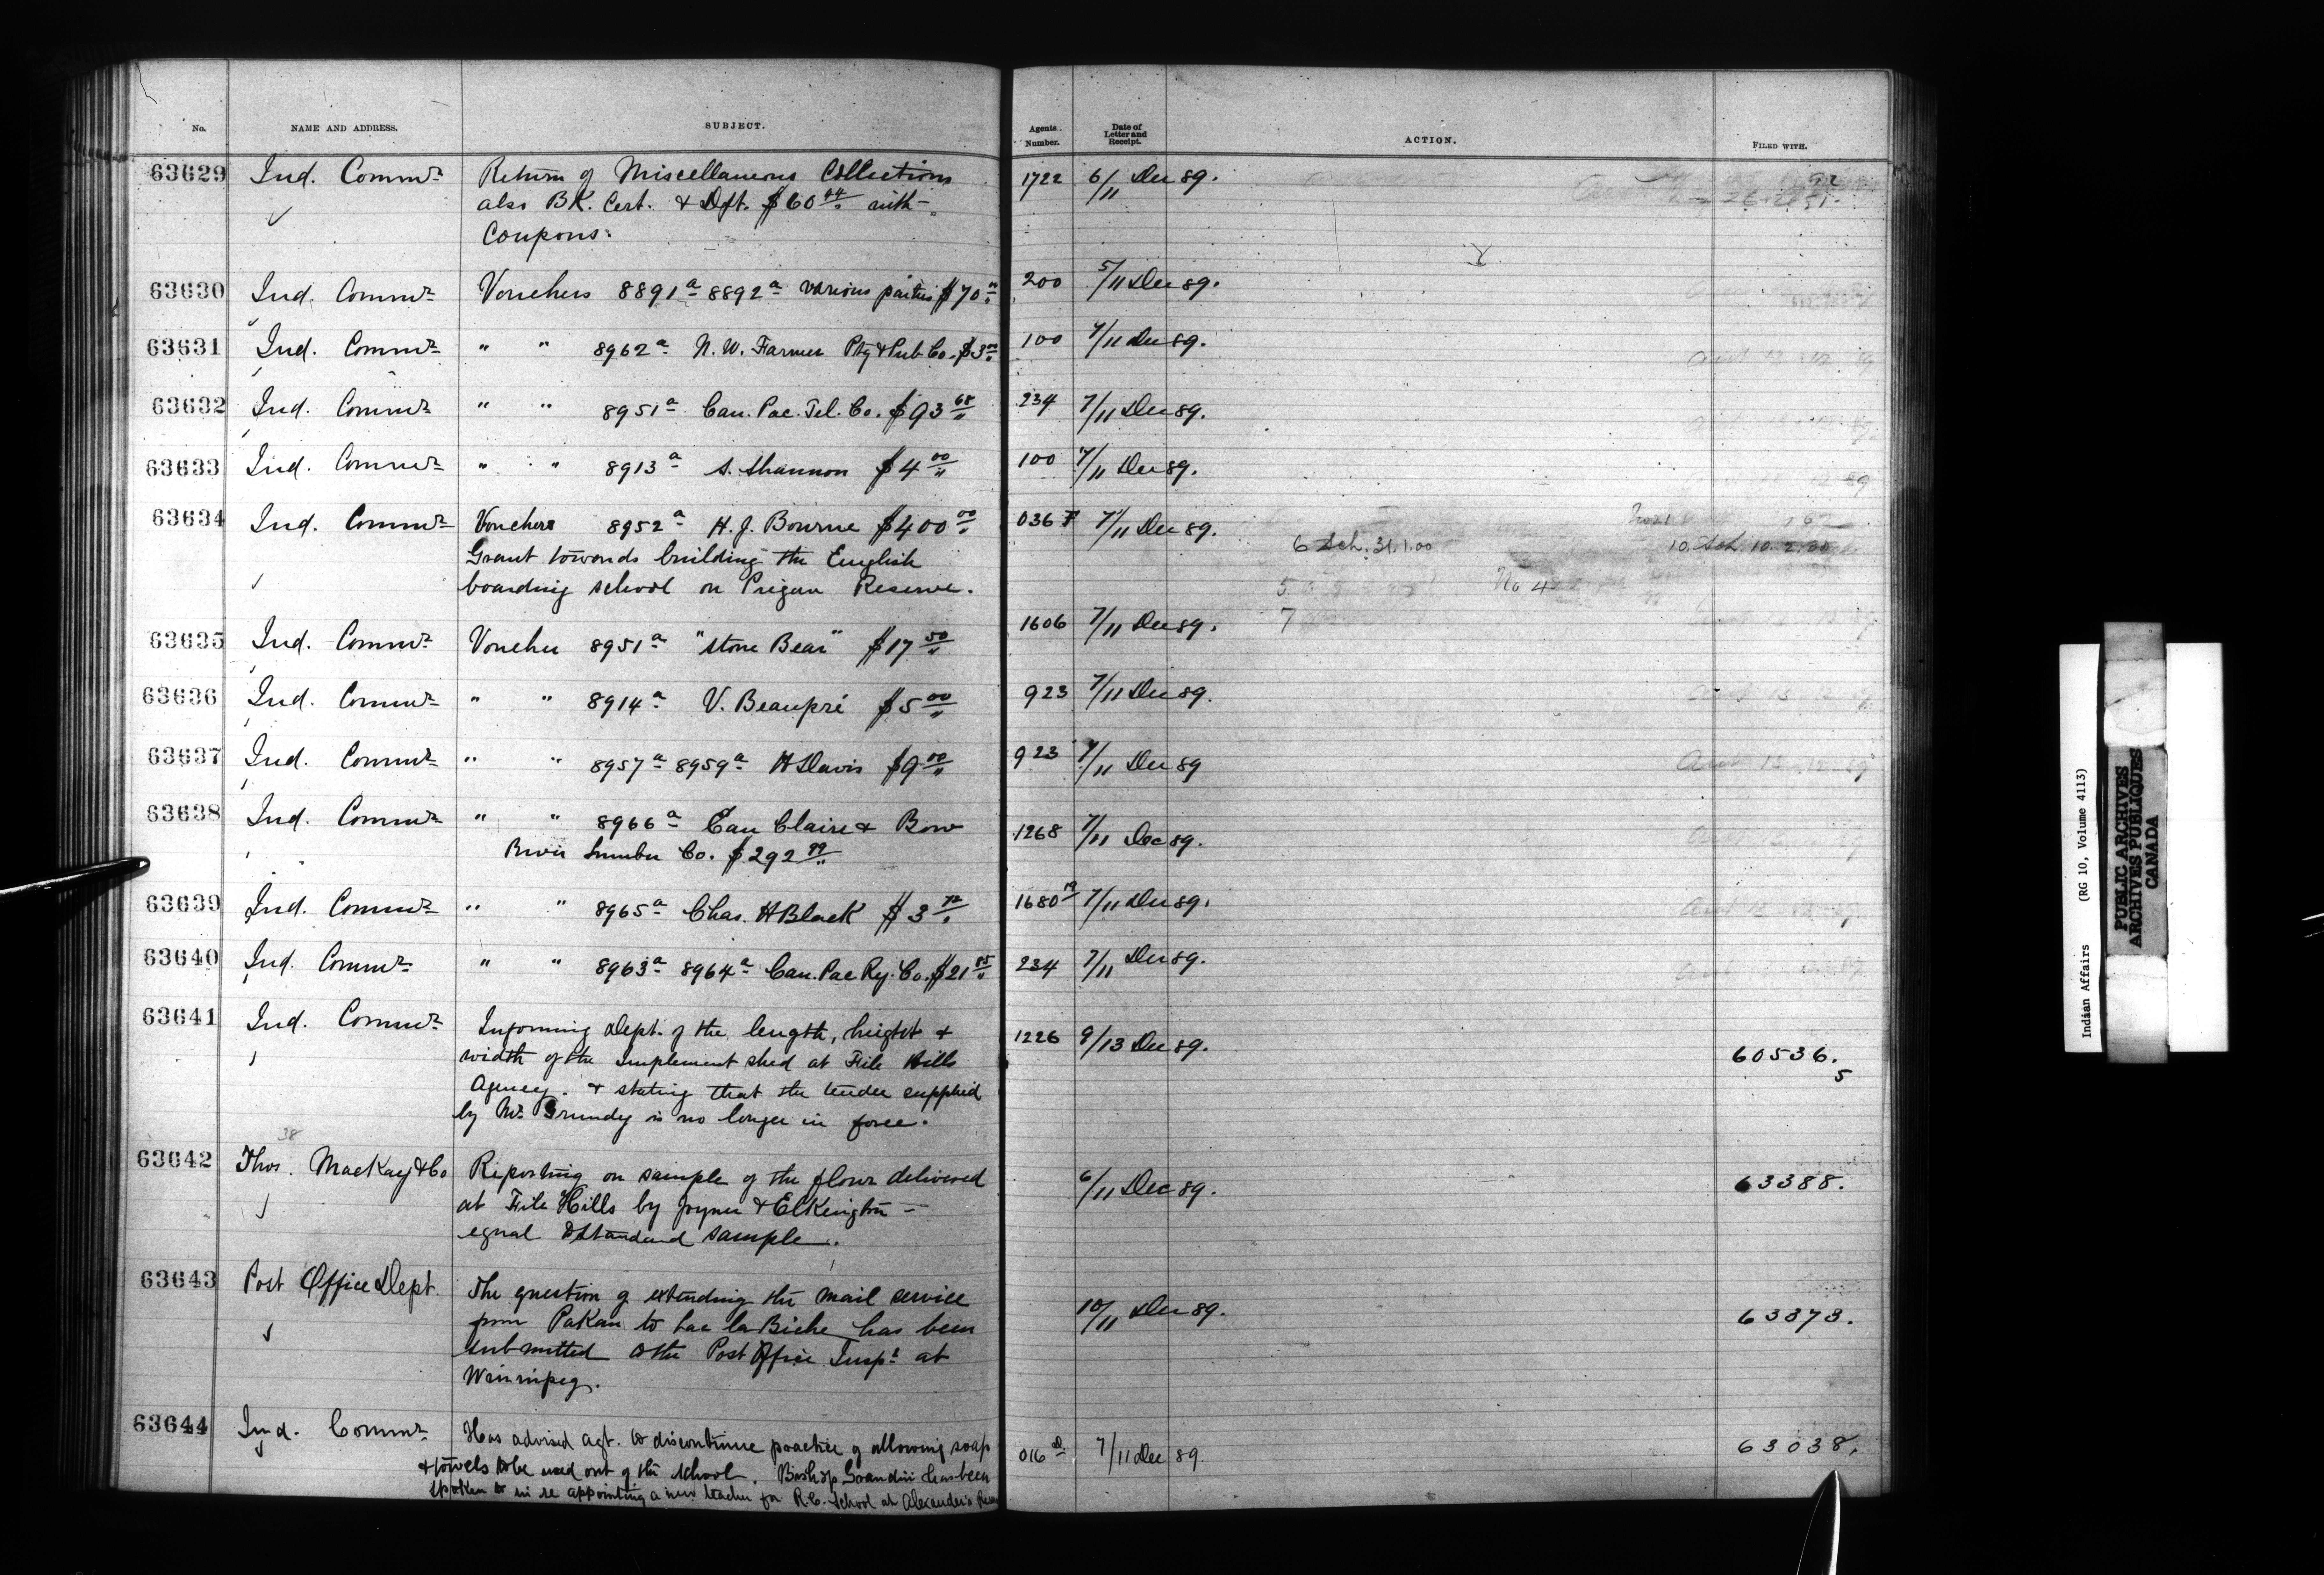 No. NAME AND ADDRESS. SUBJECT. Agents Number. Date of Letter and Receipt. ACTION. FILED WITH.
63629 Ind. Commr Return of Miscellaneous Collections 1722 6/11 Dec 89.
also BK. Cert. & Dft. $60 04 with
Coupons.
63630 Ind. Commr Vouchers 8891a 8892a various parties $70 00 200 5/11 Dec 89.
63631 Ind. Commr " " 8962a N. W. Farmer Ptg & Pub Co. $3 00 100 7/11 Dec 89.
63632 Ind. Commr " " 8951a Can. Pac. Tel. Co. $93 68 234 7/11 Dec 89.
63633 Ind. Commr " " 8913a S. Shannon $4 00 100 7/11 Dec 89.
63634 Ind. Commr Vouchers 8952a H. J. Bourne $400 00 036 7/11 Dec 89.
Grant towards building the English 6 Sch. 31.1.00 10. Sch. 10. 2.
boarding school on Piegan Reserve. 5 No 4
63635 Ind. Commr Voucher 8951a "Stone Bear" $17 50 1606 7/11 Dec 89. 7
63636 Ind. Commr " " 8914a V. Beaupré $5 00 923 7/11 Dec 89.
63637 Ind. Commr " " 8957a 8959a H Davis $9 00 923 7/11 Dec 89
63638 Ind. Commr " " 8966a Eau Claire & Bow 1268 7/11 Dec 89.
River Lumber Co. $292 99
63639 Ind. Commr " " 8965a Chas. H Black $3 72 1680 19 7/11 Dec 89.
63640 Ind. Commr " " 8963a 8964a Can. Pac Ry. Co. $21 85 234 7/11 Dec 89.
63641 Ind. Commr Informing Dept. of the length, height & 1226 9/13 Dec 89.
width of the Implement shed at File Hills 60536.
Agency. & stating that the tender supplied 5
by Mr. Grundy is no longer in force.
38
63642 Thos. MacKay & Co Reporting on sample of the flour delivered 6/11 Dec 89. 63388.
at File Hills by Joyner & Elkington –
equal to Standard Sample.
63643 Post Office Dept. The question of extending the mail service 10/11 Dec 89. 63373.
from Pakan to Lac la Biche has been
submitted to the Post Office Inspr at
Winnipeg.
63644 Ind. Commr Has advised agt. to discontinue practice of allowing soap 016 7/11 Dec 89 63038.
& towels to be used out of the school. Bishop Grandin has been
spoken to in re appointing a new teacher for R.C. School at Alexander's
Indian Affairs (RG 10, Volume 4113)
PUBLIC ARCHIVES
ARCHIVES PUBLIQUES
CANADA